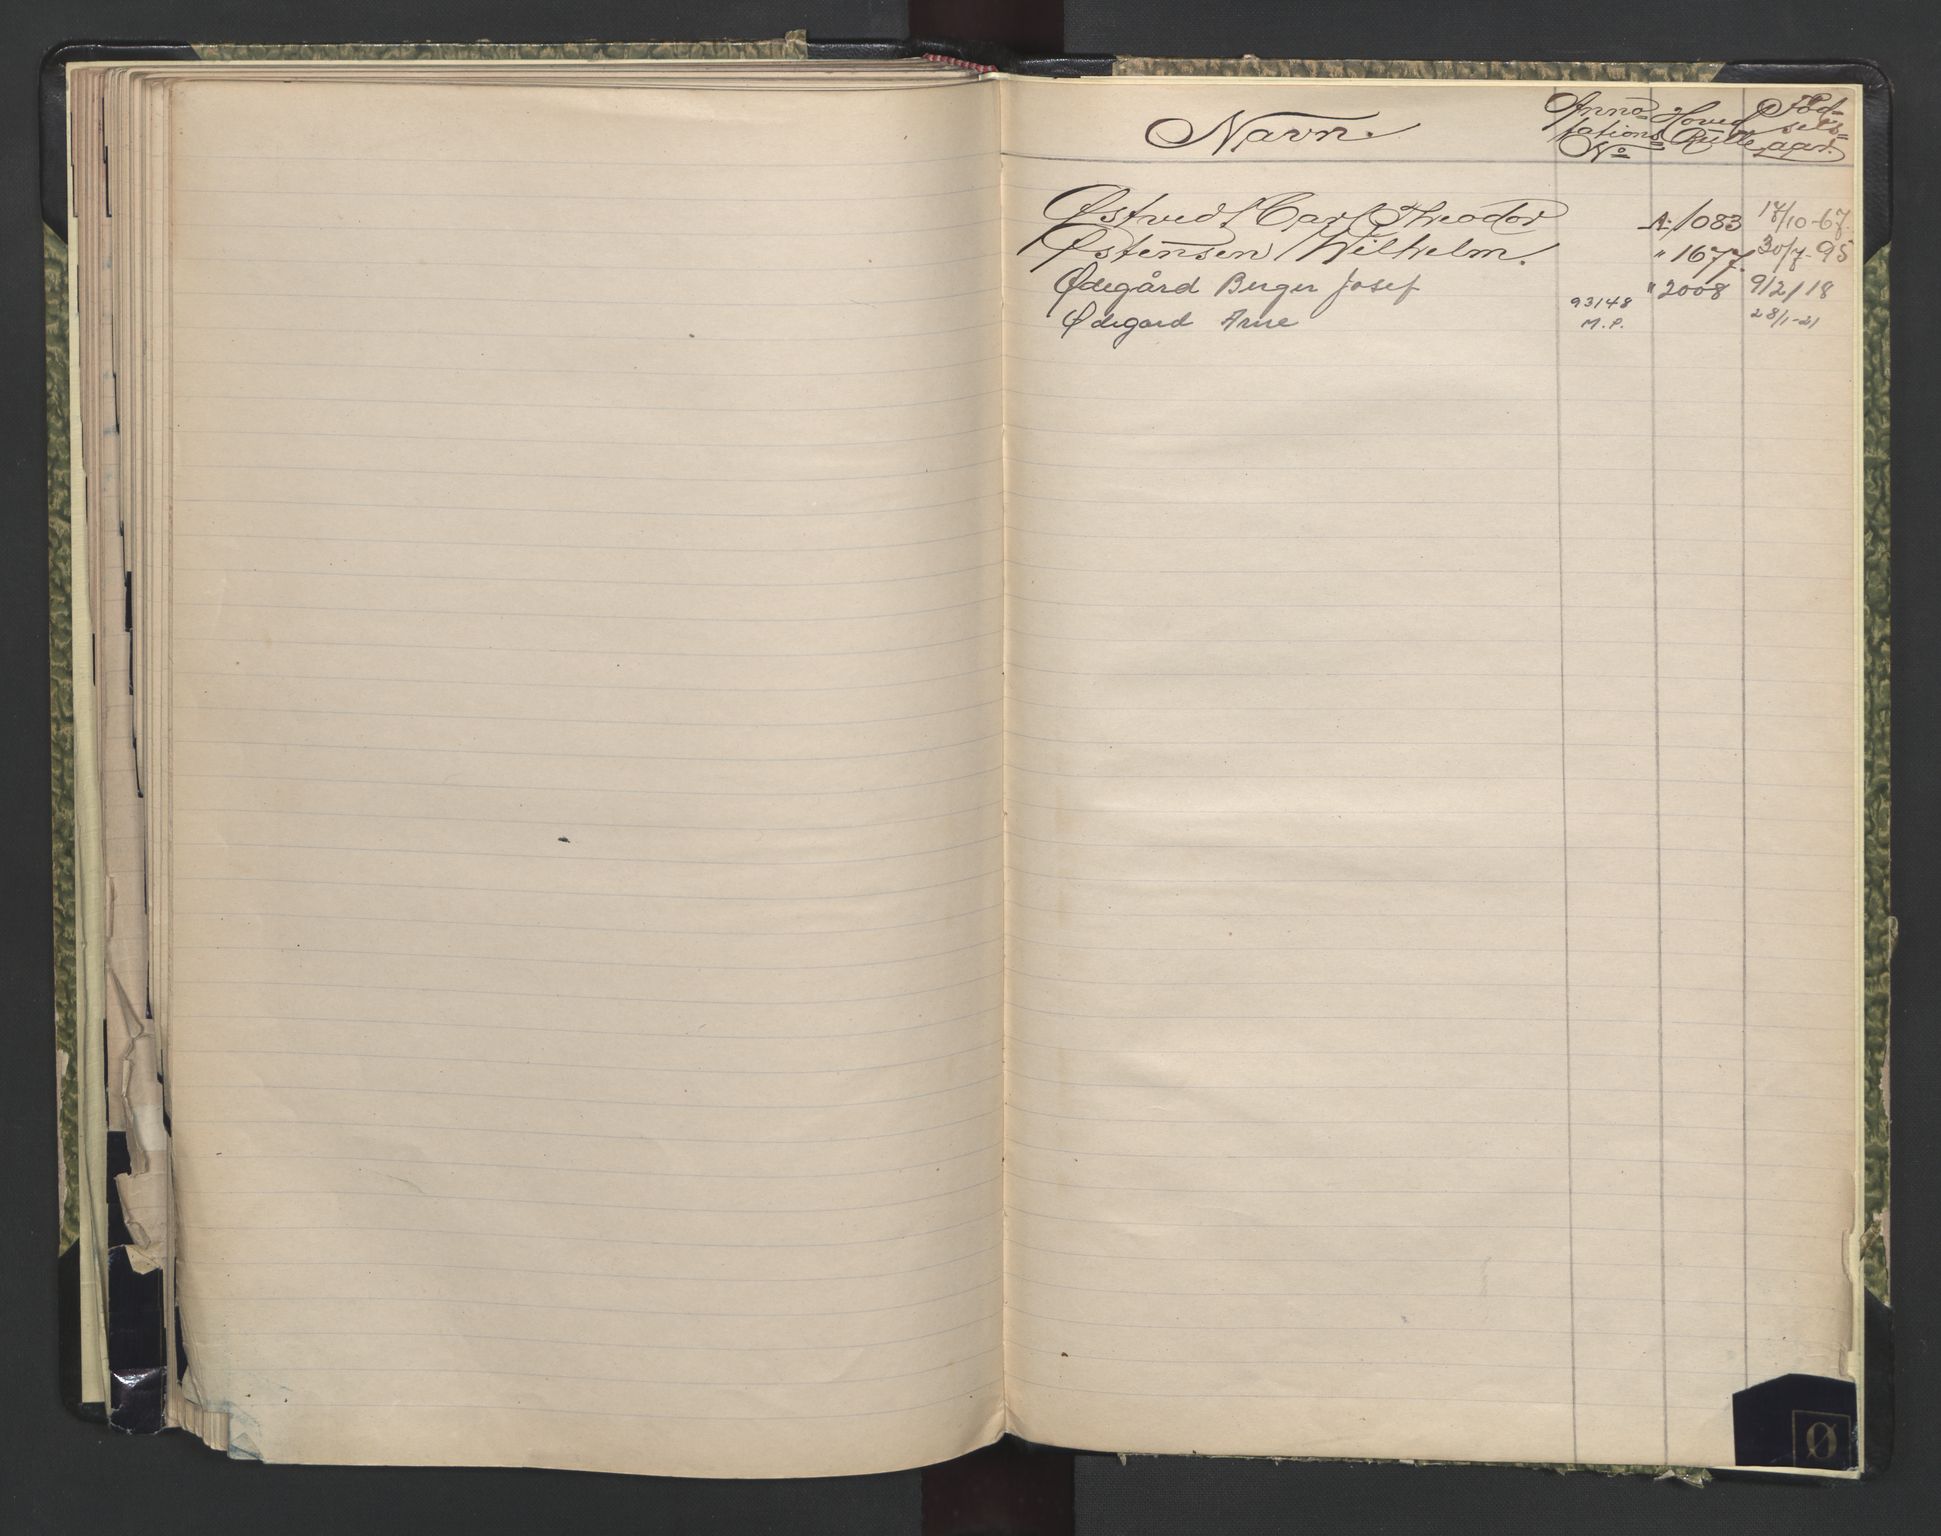 Navn. Anno= Hoved Föd=
tations= Rulle sels=
No aar.
Østved Carl Theodor A. 1083 17/10-67.
Østensen Wilhelm. " 1677. 30/7-95
Ødegård Berger Josef " 2008 9/2/18
Ødegard Arne 93148 28/1-21
M.P.
Ø